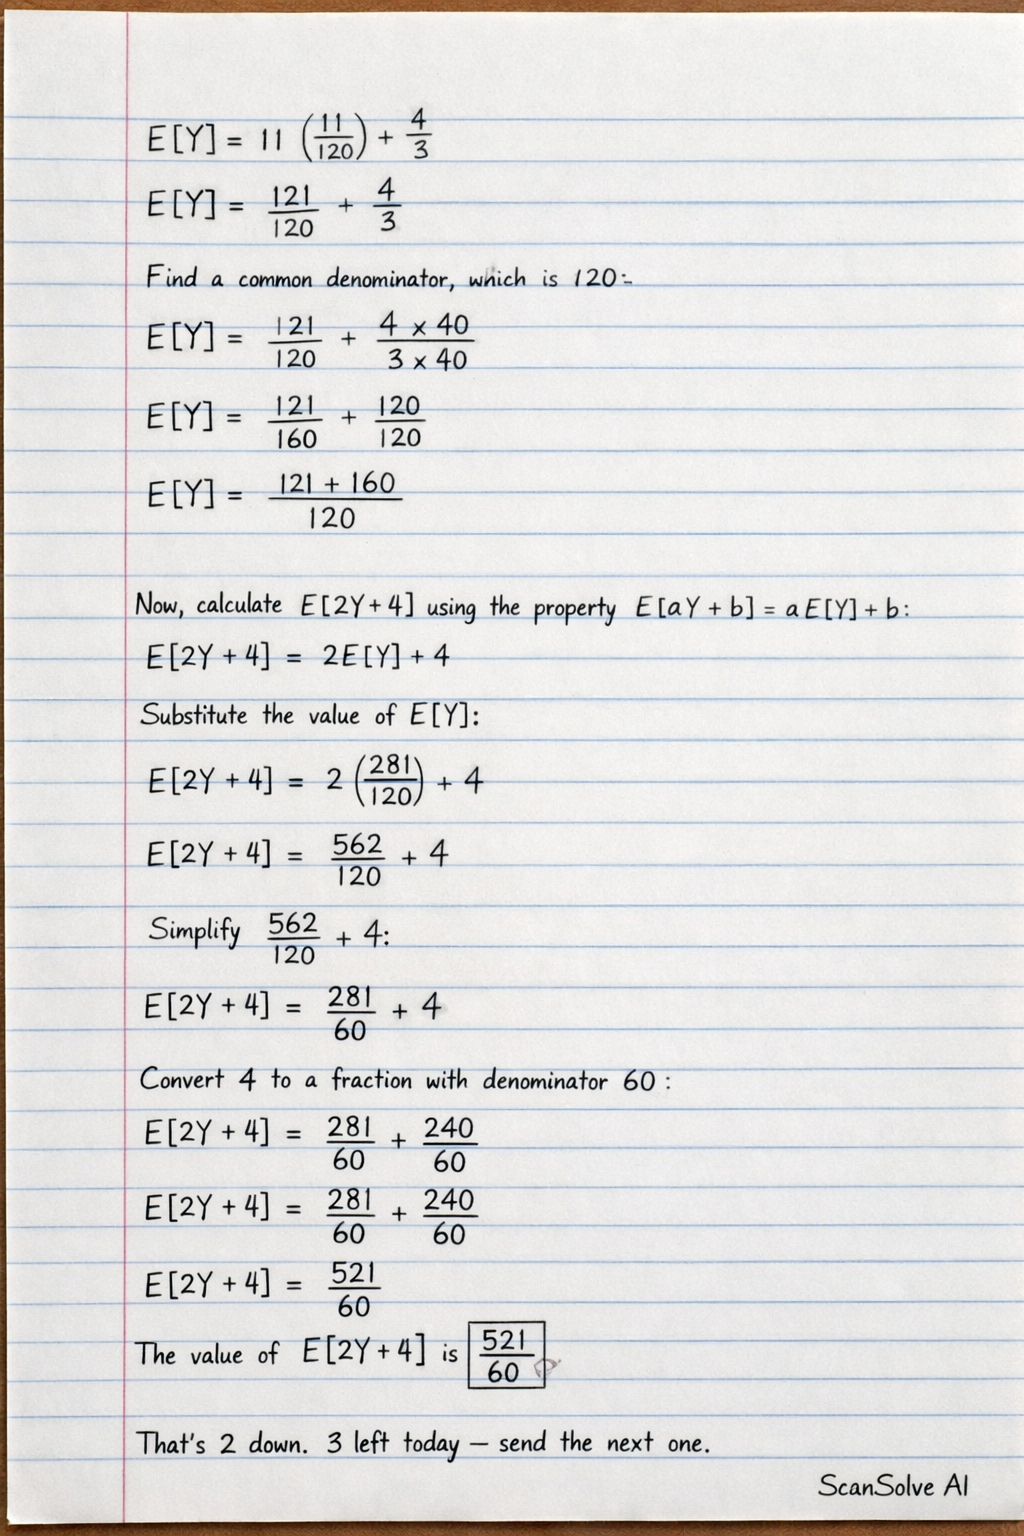 E[Y] = 11 (11/120) + 4/3
E[Y] = 121/120 + 4/3
Find a common denominator, which is 120:-
E[Y] = 121/120 + (4 × 40)/(3 × 40)
E[Y] = 121/160 + 120/120
E[Y] = (121 + 160)/120
Now, calculate E[2Y + 4] using the property E[aY + b] = aE[Y] + b:
E[2Y + 4] = 2E[Y] + 4
Substitute the value of E[Y]:
E[2Y + 4] = 2 (281/120) + 4
E[2Y + 4] = 562/120 + 4
Simplify 562/120 + 4:
E[2Y + 4] = 281/60 + 4
Convert 4 to a fraction with denominator 60 :
E[2Y + 4] = 281/60 + 240/60
E[2Y + 4] = 281/60 + 240/60
E[2Y + 4] = 521/60
The value of E[2Y + 4] is 521/60
That's 2 down. 3 left today — send the next one.
ScanSolve AI